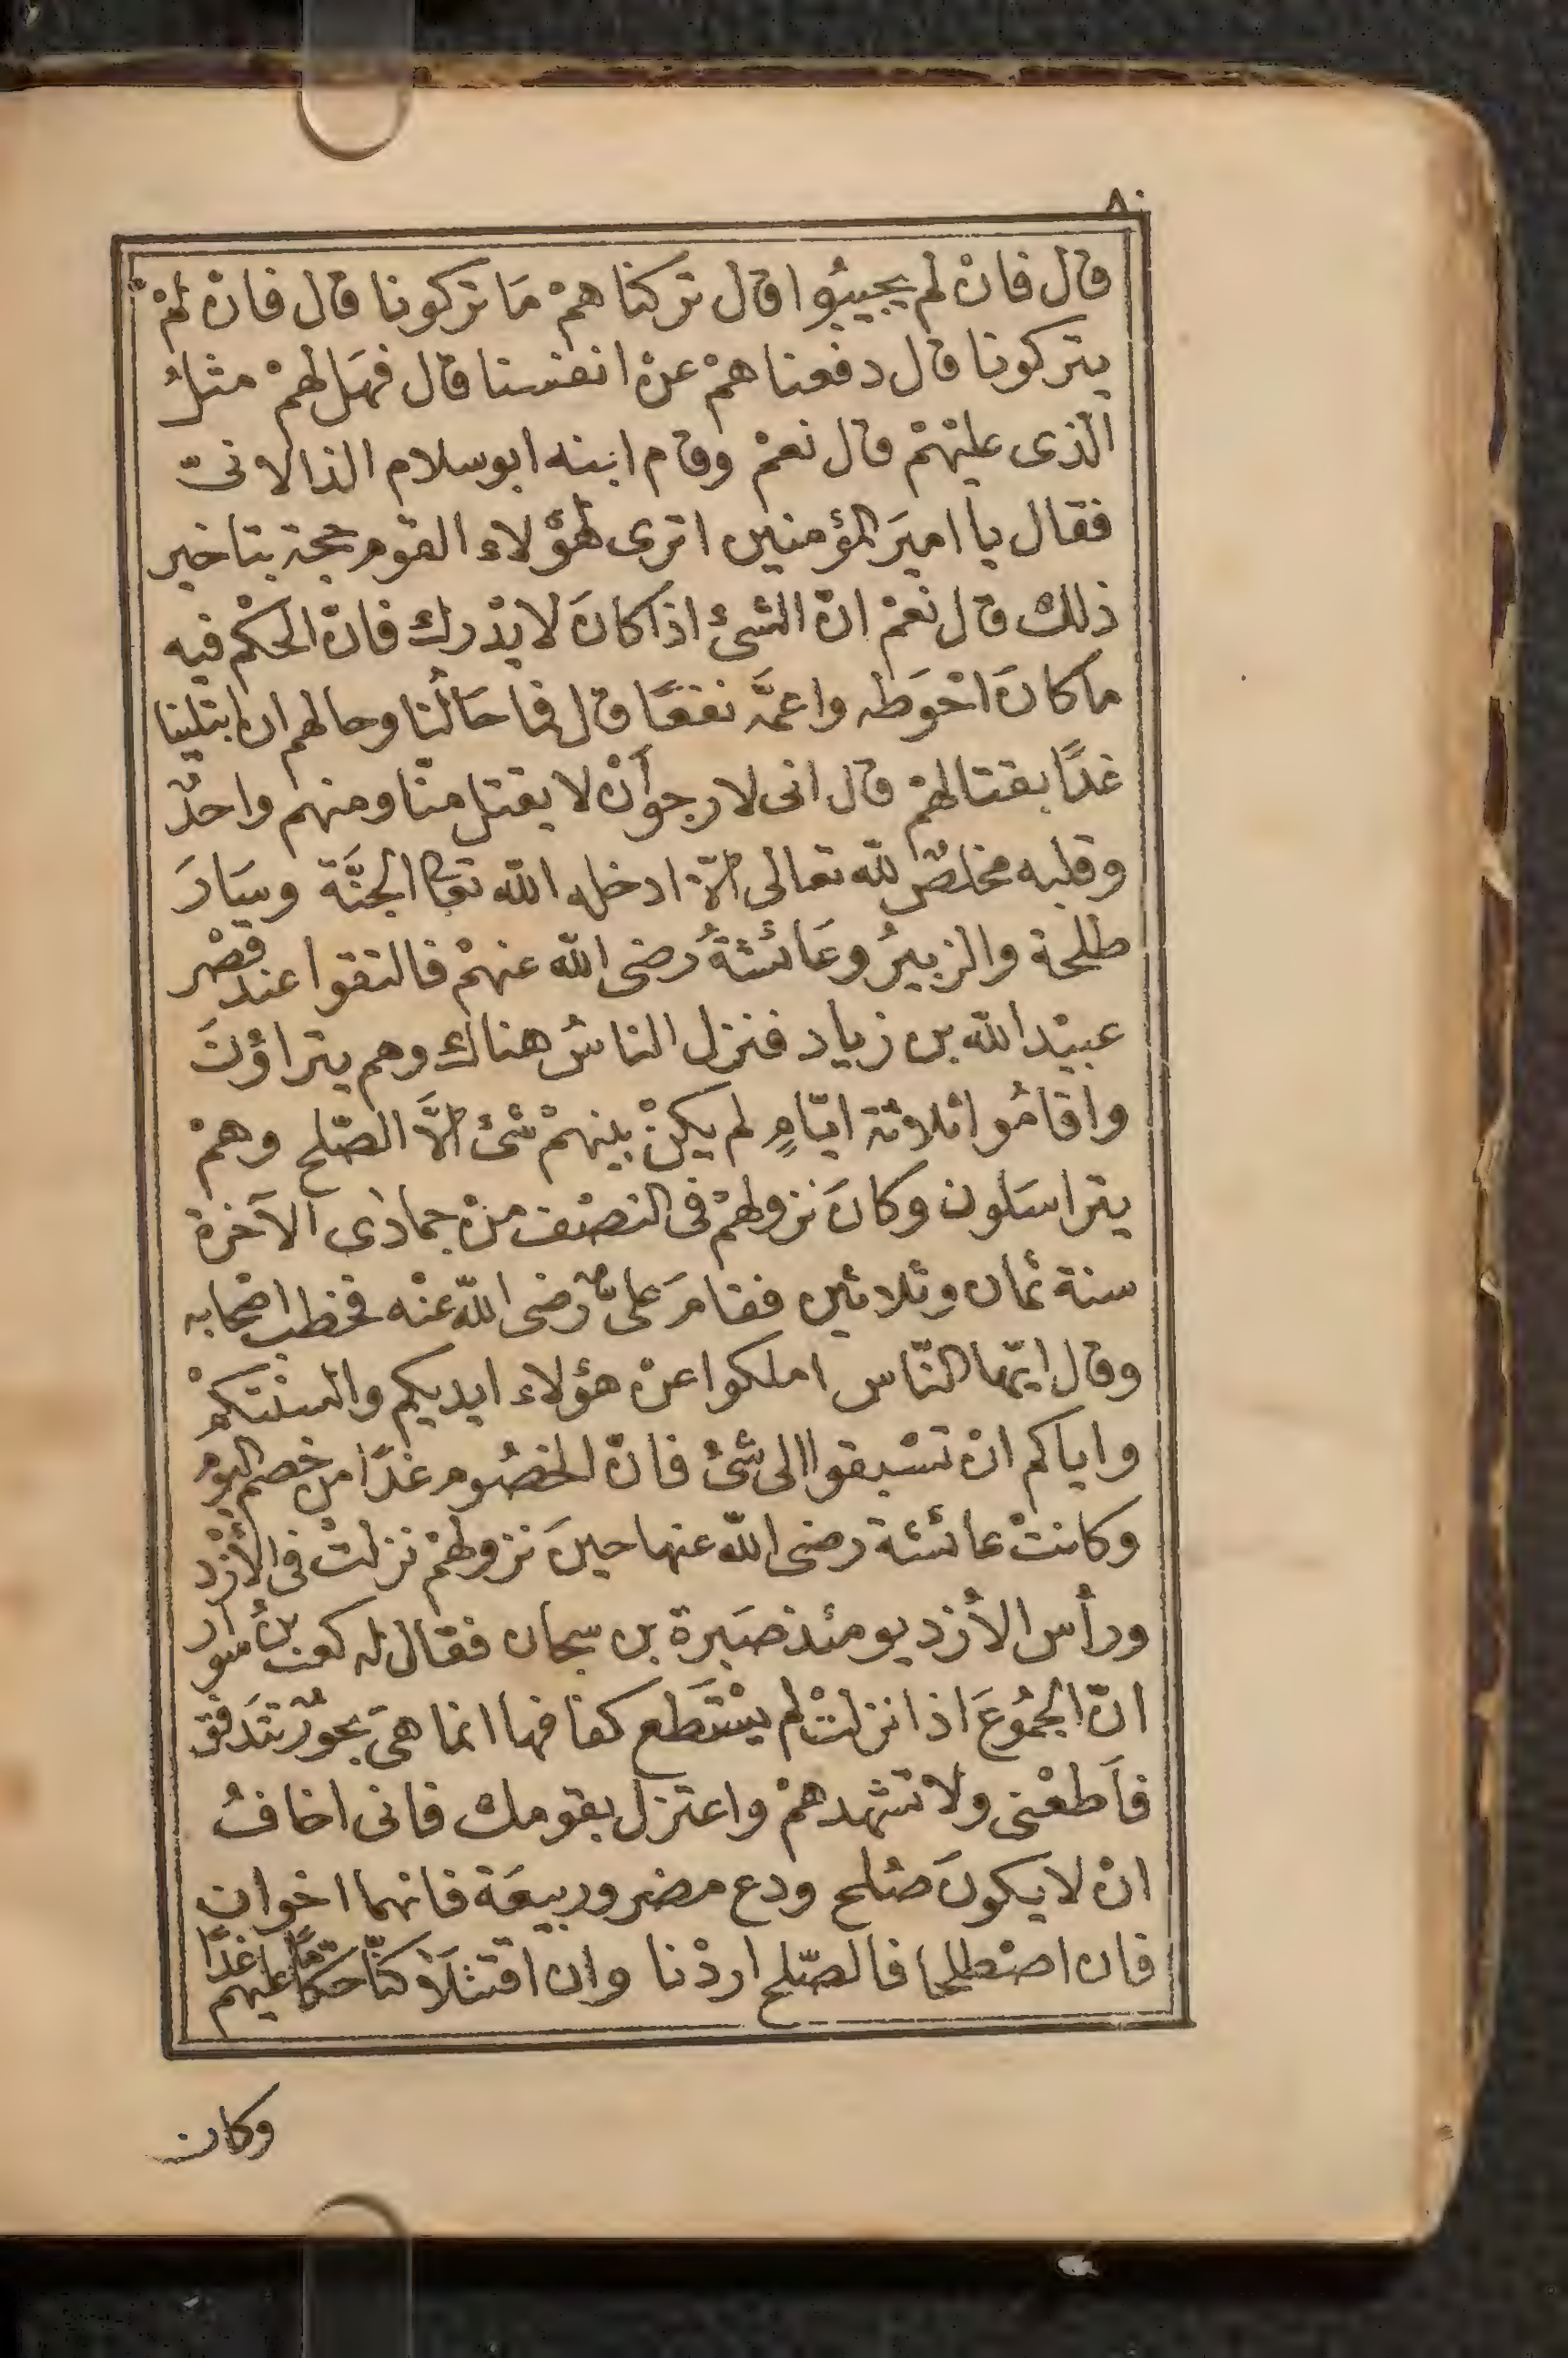 ٨٠
قال فانْ لم يجيبُوا قال تركناهمْ مَا تركونا قال فانْ لمْ
يتركونا قال دفعناهمْ عنْ انفسنا قال فهَل لهمْ مثلُ
الّذى عليْهمْ قال نعمْ وقام ابنه ابوسلام الذالانىّ
فقال يا اميرَ المؤمنين اترى لهؤلاء القوم حجة بتاخير
ذلك قال نعمْ انّ الشىءْ اذا كانَ لا يدْرك فانّ الحكْم فيه
ما كانَ احْوَطه واعمَّه نفعًا قال فما حَالُنا وحالهم ان ابتلينا
غدًا بقتالهمْ قال انى لارجوأنْ لا يقتل منّا ومنهم واحدٌ
وقلبه مخلصٌ للّه تعالى الّا ادخله اللّه تعالى الجنَّة وسَارَ
طلحة والزبيرُ وعَائشةُ رضى اللّه عنهمْ فالتقوا عند قصْر
عبيْداللّه بن زياد فنزل الناسُ هناك وهم يتراؤنَ
واقامُوا ثلاثة ايّامٍ لم يكنْ بينهمْ شىءْ الَّا الصّلح وهمْ
يتراسَلون وكانَ نزولهمْ فى النصْف منْ جمادى الآخرة
سنة ثمان وثلاثين فقامَ علىّ رضى اللّه عنْه فخطب اصْحابه
وقال ايّها النّاس املكوا عنْ هؤلاء ايديكم والسنْتكمْ
واياكم انْ تسْبقوا الى شىءْ فانّ الخصُوم غدًا من خصم اليوم
وكانتْ عائشة رضى اللّه عنها حينَ نزولهمْ نزلتْ فى الأزْد
ورأس الأزد يومئذ صَبرة بن سبحان فقال له كعب بنُ سوار
انّ الجمُوعَ اذا نزلتْ لم يسْتَطع كفافها انما هىَ بحورٌ تتدَفق
فأَطعْنى ولا تشهدهمْ واعتزل بقومك فانى اخافُ
انْ لا يكونَ صُلح ودع مضر وربيعَة فانهما اخوان
فان اصْطلحا فالصّلح اردْنا وان اقتتلَا كنّا حكّامًا عليهم غدًا
وكان